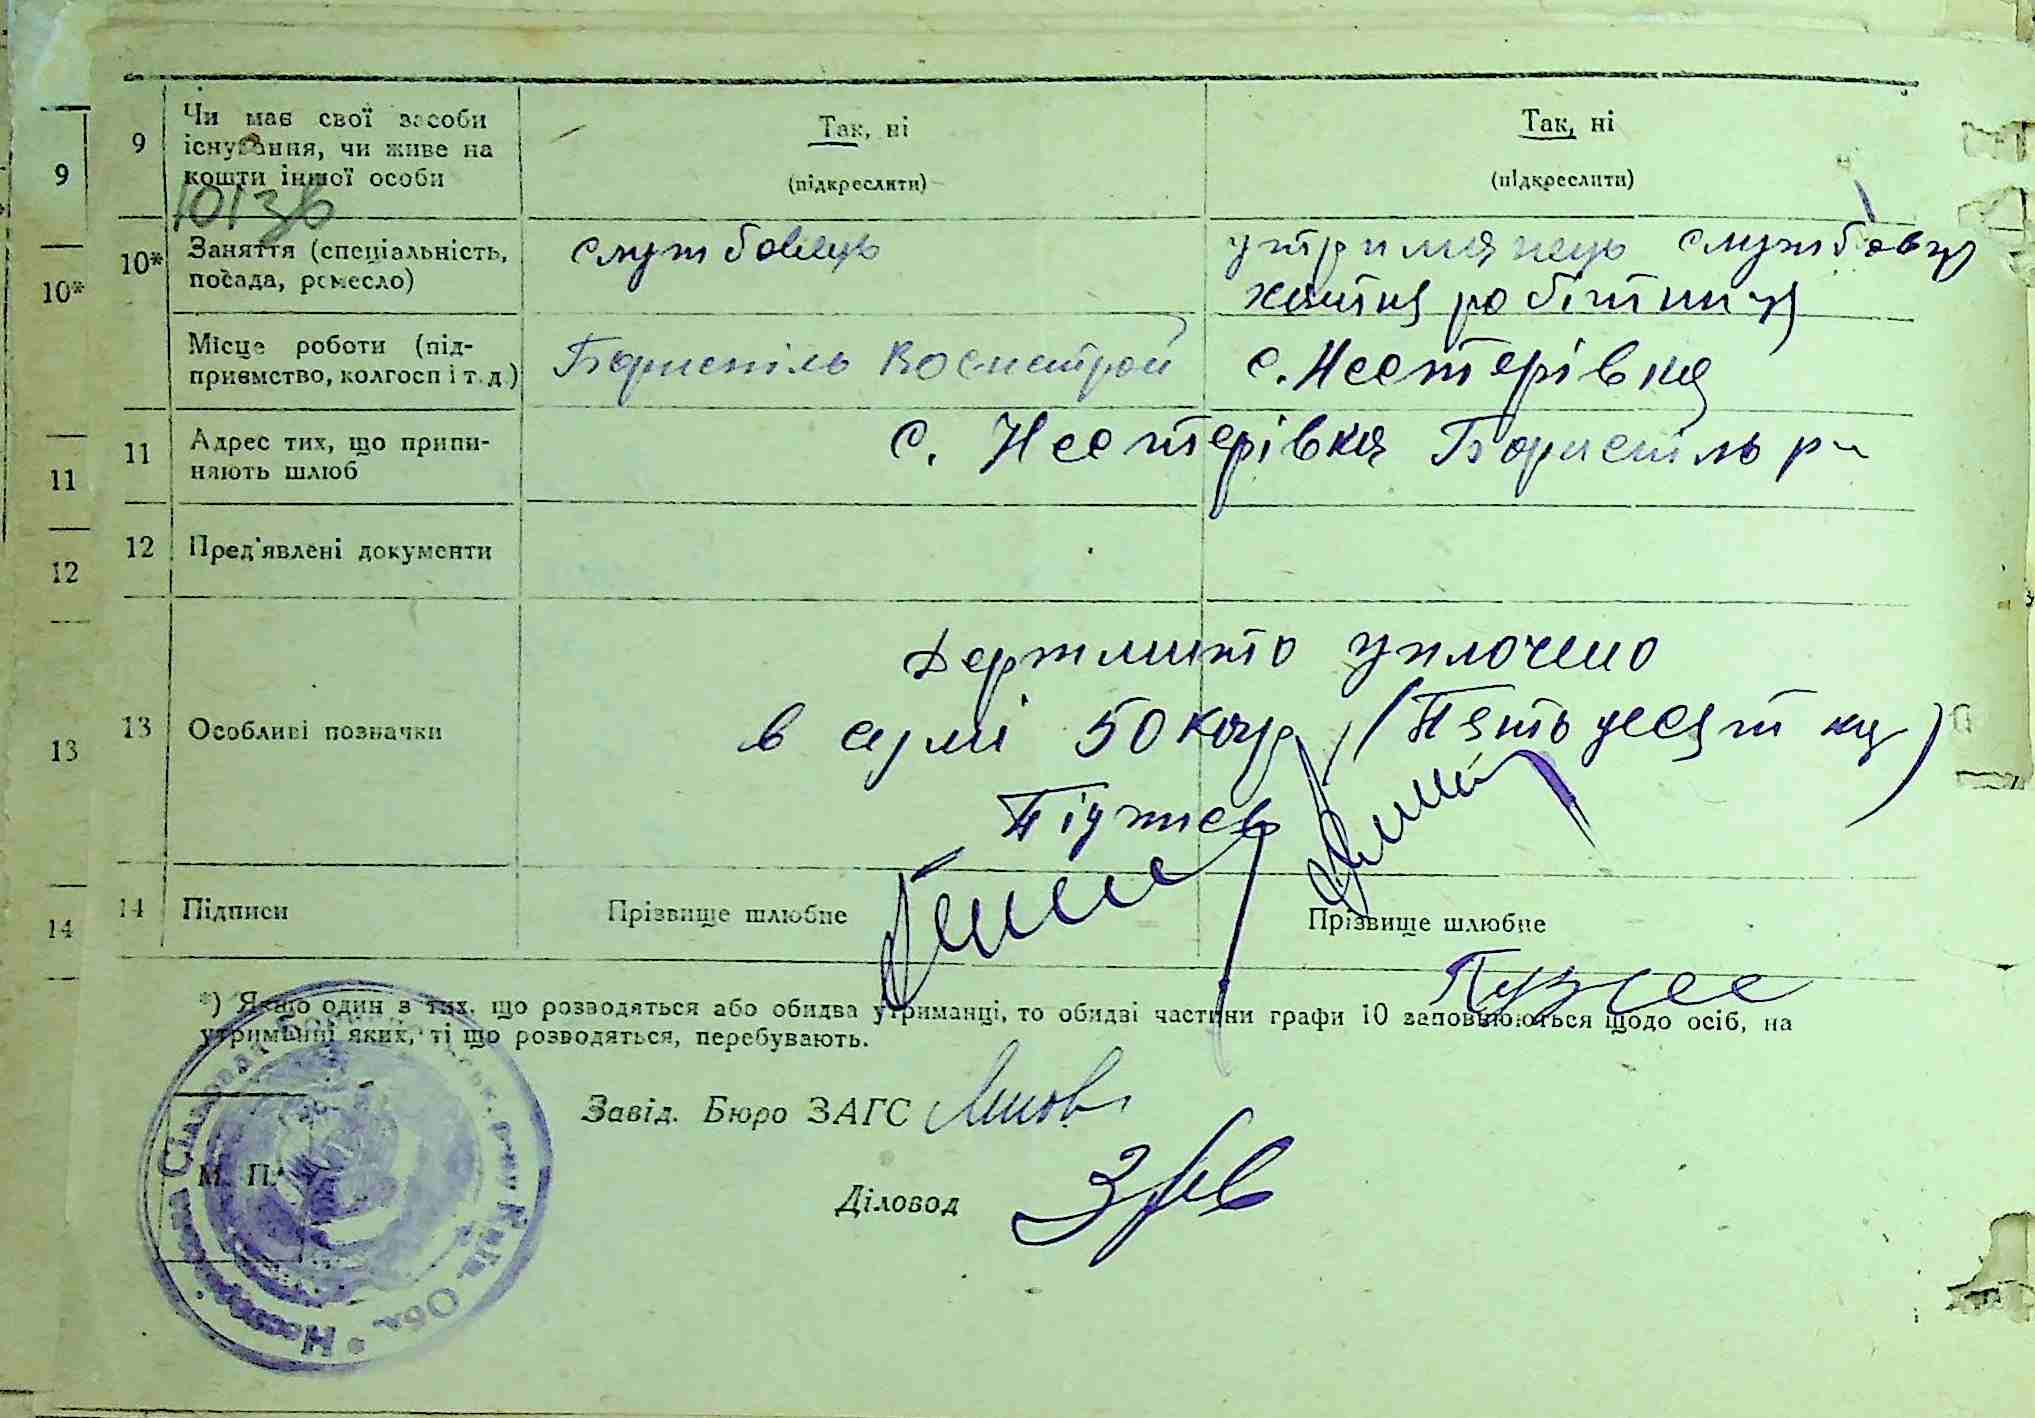 9 9 Чи має свої засоби існування, чи живе на кошти іншої особи
Так, ні
(підкреслити)
Так, ні
(підкреслити)
10136
10* 10* Заняття (спеціальність, посада, ремесло)
службовець
утриманець службовця
хатня робітниця
Місце роботи (підприємство, колгосп і т. д.)
Бориспіль Воєнстрой
с. Нестерівка
11 11 Адрес тих, що припиняють шлюб
с. Нестерівка Бориспіль р-н
12 12 Пред'явлені документи
13 13 Особливі позначки
Держмито уплочено
в сумі 50 (Пятьдесят
14 14 Підписи
Прізвище шлюбне
Прізвище шлюбне
*) Якщо один з тих, що розводяться або обидва утриманці, то обидві частини графи 10 заповнюються щодо осіб, на
утриманні яких, ті що розводяться, перебувають.
Завід. Бюро ЗАГС
М. П.
Діловод
Сільська Рада Київ. Обл.